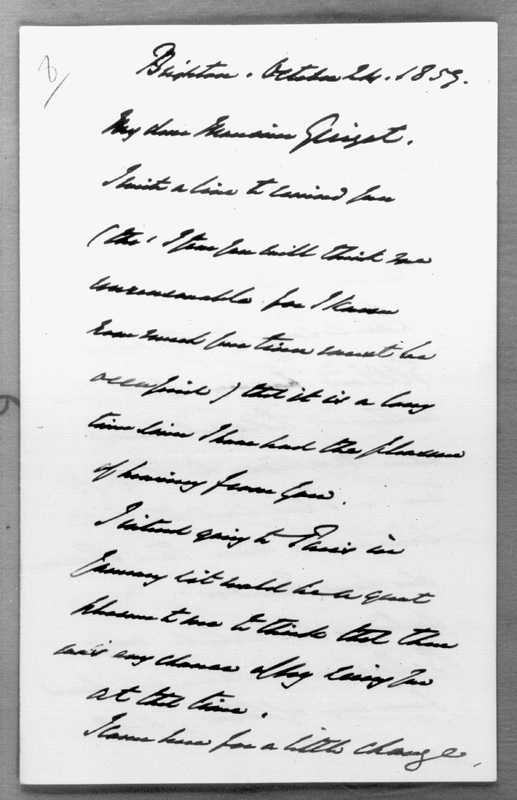 8
Brighton. October 24. 1859.
My dear Monsieur Guizot.
I write a line to remind you
(tho' I fear you will think me
unreasonable for I know
how much your time must be
occupied) that it is a long
time since I have had the pleasure
of hearing from you.
I intend going to Paris in
January & it would be a great
pleasure to me to think that there
was any chance of my seeing you
at that time.
I came here for a little change,